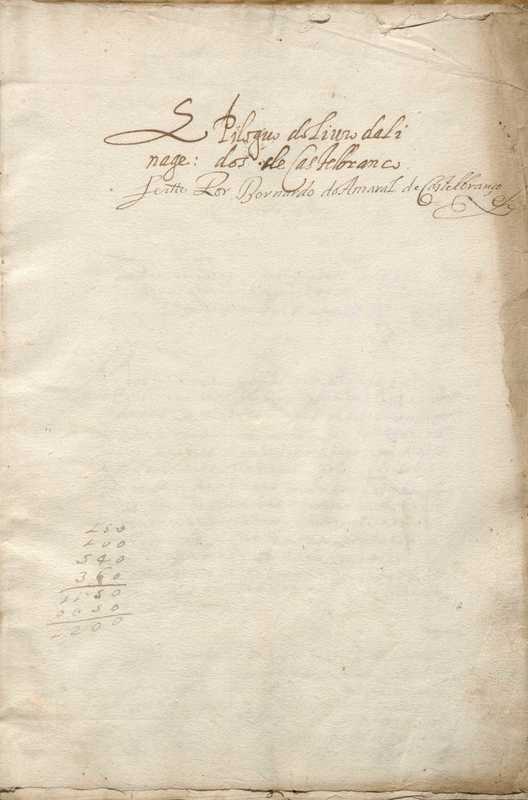 EPiloguo do Liuro da Li
nage: dos de Castelbranco
Feitto Por Bernardo do Amaral de Castelbranco
150
100
540
360
1150
0050
1200